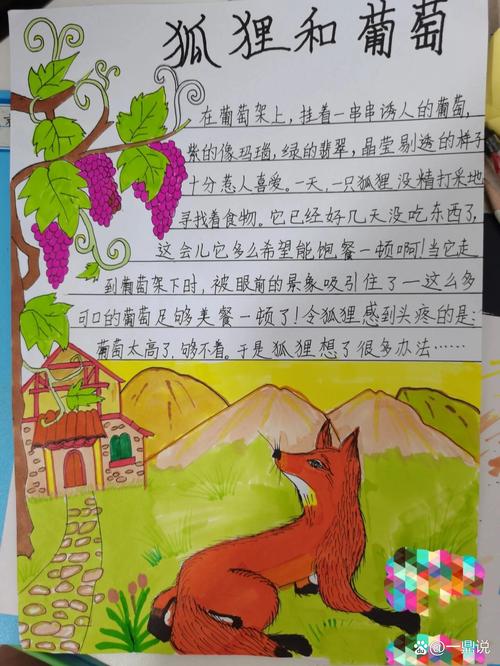 狐狸和葡萄
在葡萄架上,挂着一串串诱人的葡萄,
紫的像玛瑙,绿的翡翠,晶莹剔透的样子
十分惹人喜爱。一天,一只狐狸没精打采地
寻找着食物。它已经好几天没吃东西了,
这会儿它多么希望能饱餐一顿啊!当它走
到葡萄架下时,被眼前的景象吸引住了—这么多
可口的葡萄足够美餐一顿了!令狐狸感到头疼的是:
葡萄太高了,够不着。于是狐狸想了很多办法……
一鼎说